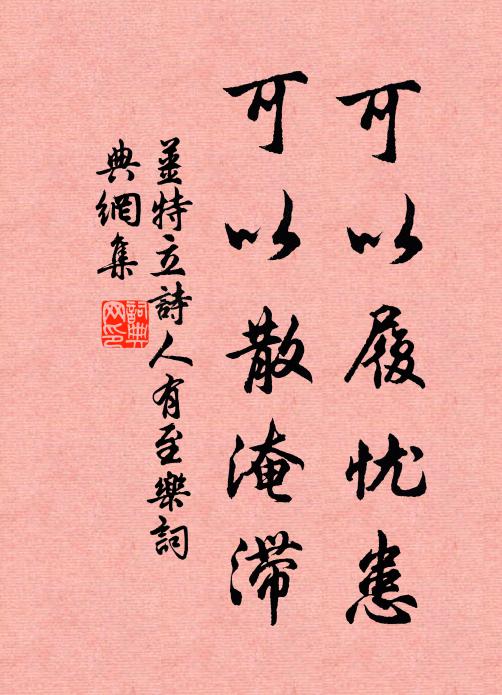 可以履忧患
可以散淹滞
姜特立詩人有至樂詞
典網集
詞典网印